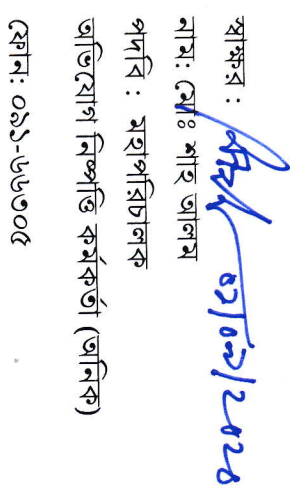 স্বাক্ষর :
নাম: মোঃ শাহ আলম
পদবি : মহাপরিচালক
অভিযোগ নিষ্পত্তি কর্মকর্তা (অনিক)
ফোন: ০৯১-৬৬৩০৫